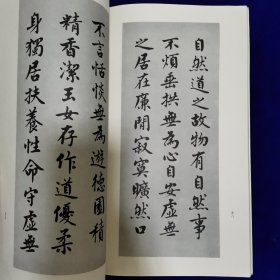 自然道之故物有自然事
不煩垂拱無為心自安虛無
之居在廉間寂寞曠然口
不言恬惔無為遊德園積
精香潔玉女存作道優柔
身獨居扶養性命守虛無